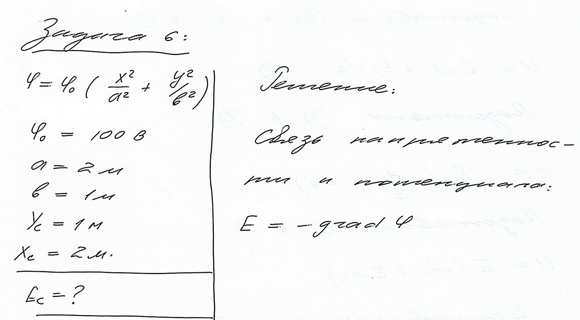 Задача 6:
φ = φ₀ ( x²/a² + y²/b² )
φ₀ = 100 В
a = 2 м
b = 1 м
Yc = 1 м
Xc = 2 м.
Ec = ?
Решение:
Связь напряженнос-
ти и потенциала:
E = - grad φ